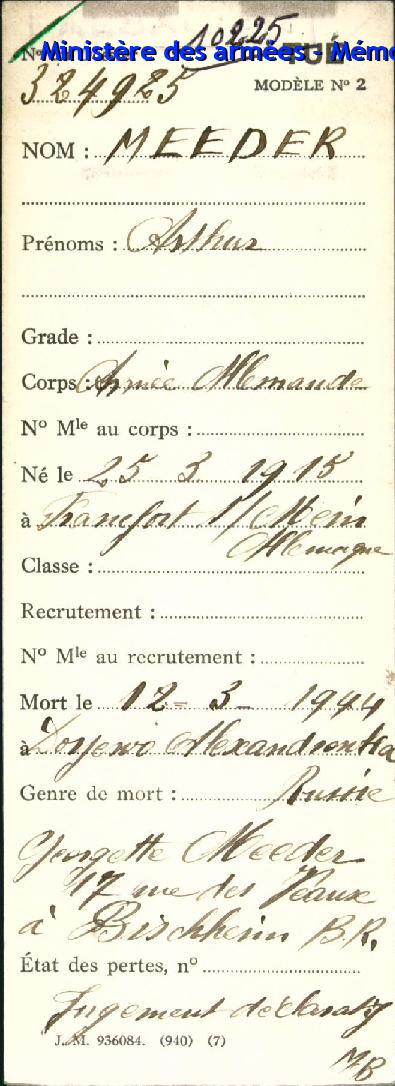 10225
Ministère des armées - Mémo
N°
324925
MODÈLE N° 2
NOM : MEEDER
Prénoms : Arthur
Grade :
Corps : Armée Allemande
N° Mle au corps :
Né le 25 3 1915
à Francfort s/ Mein
Allemagne
Classe :
Recrutement :
N° Mle au recrutement :
Mort le 12 - 3 - 1944
à Alexandrowka
Genre de mort : Russie
Georgette Meeder
17 rue des Veaux
à Bischheim B.R.
État des pertes, n°
Jugement déclaratif
J. M. 936084. (940) (7)